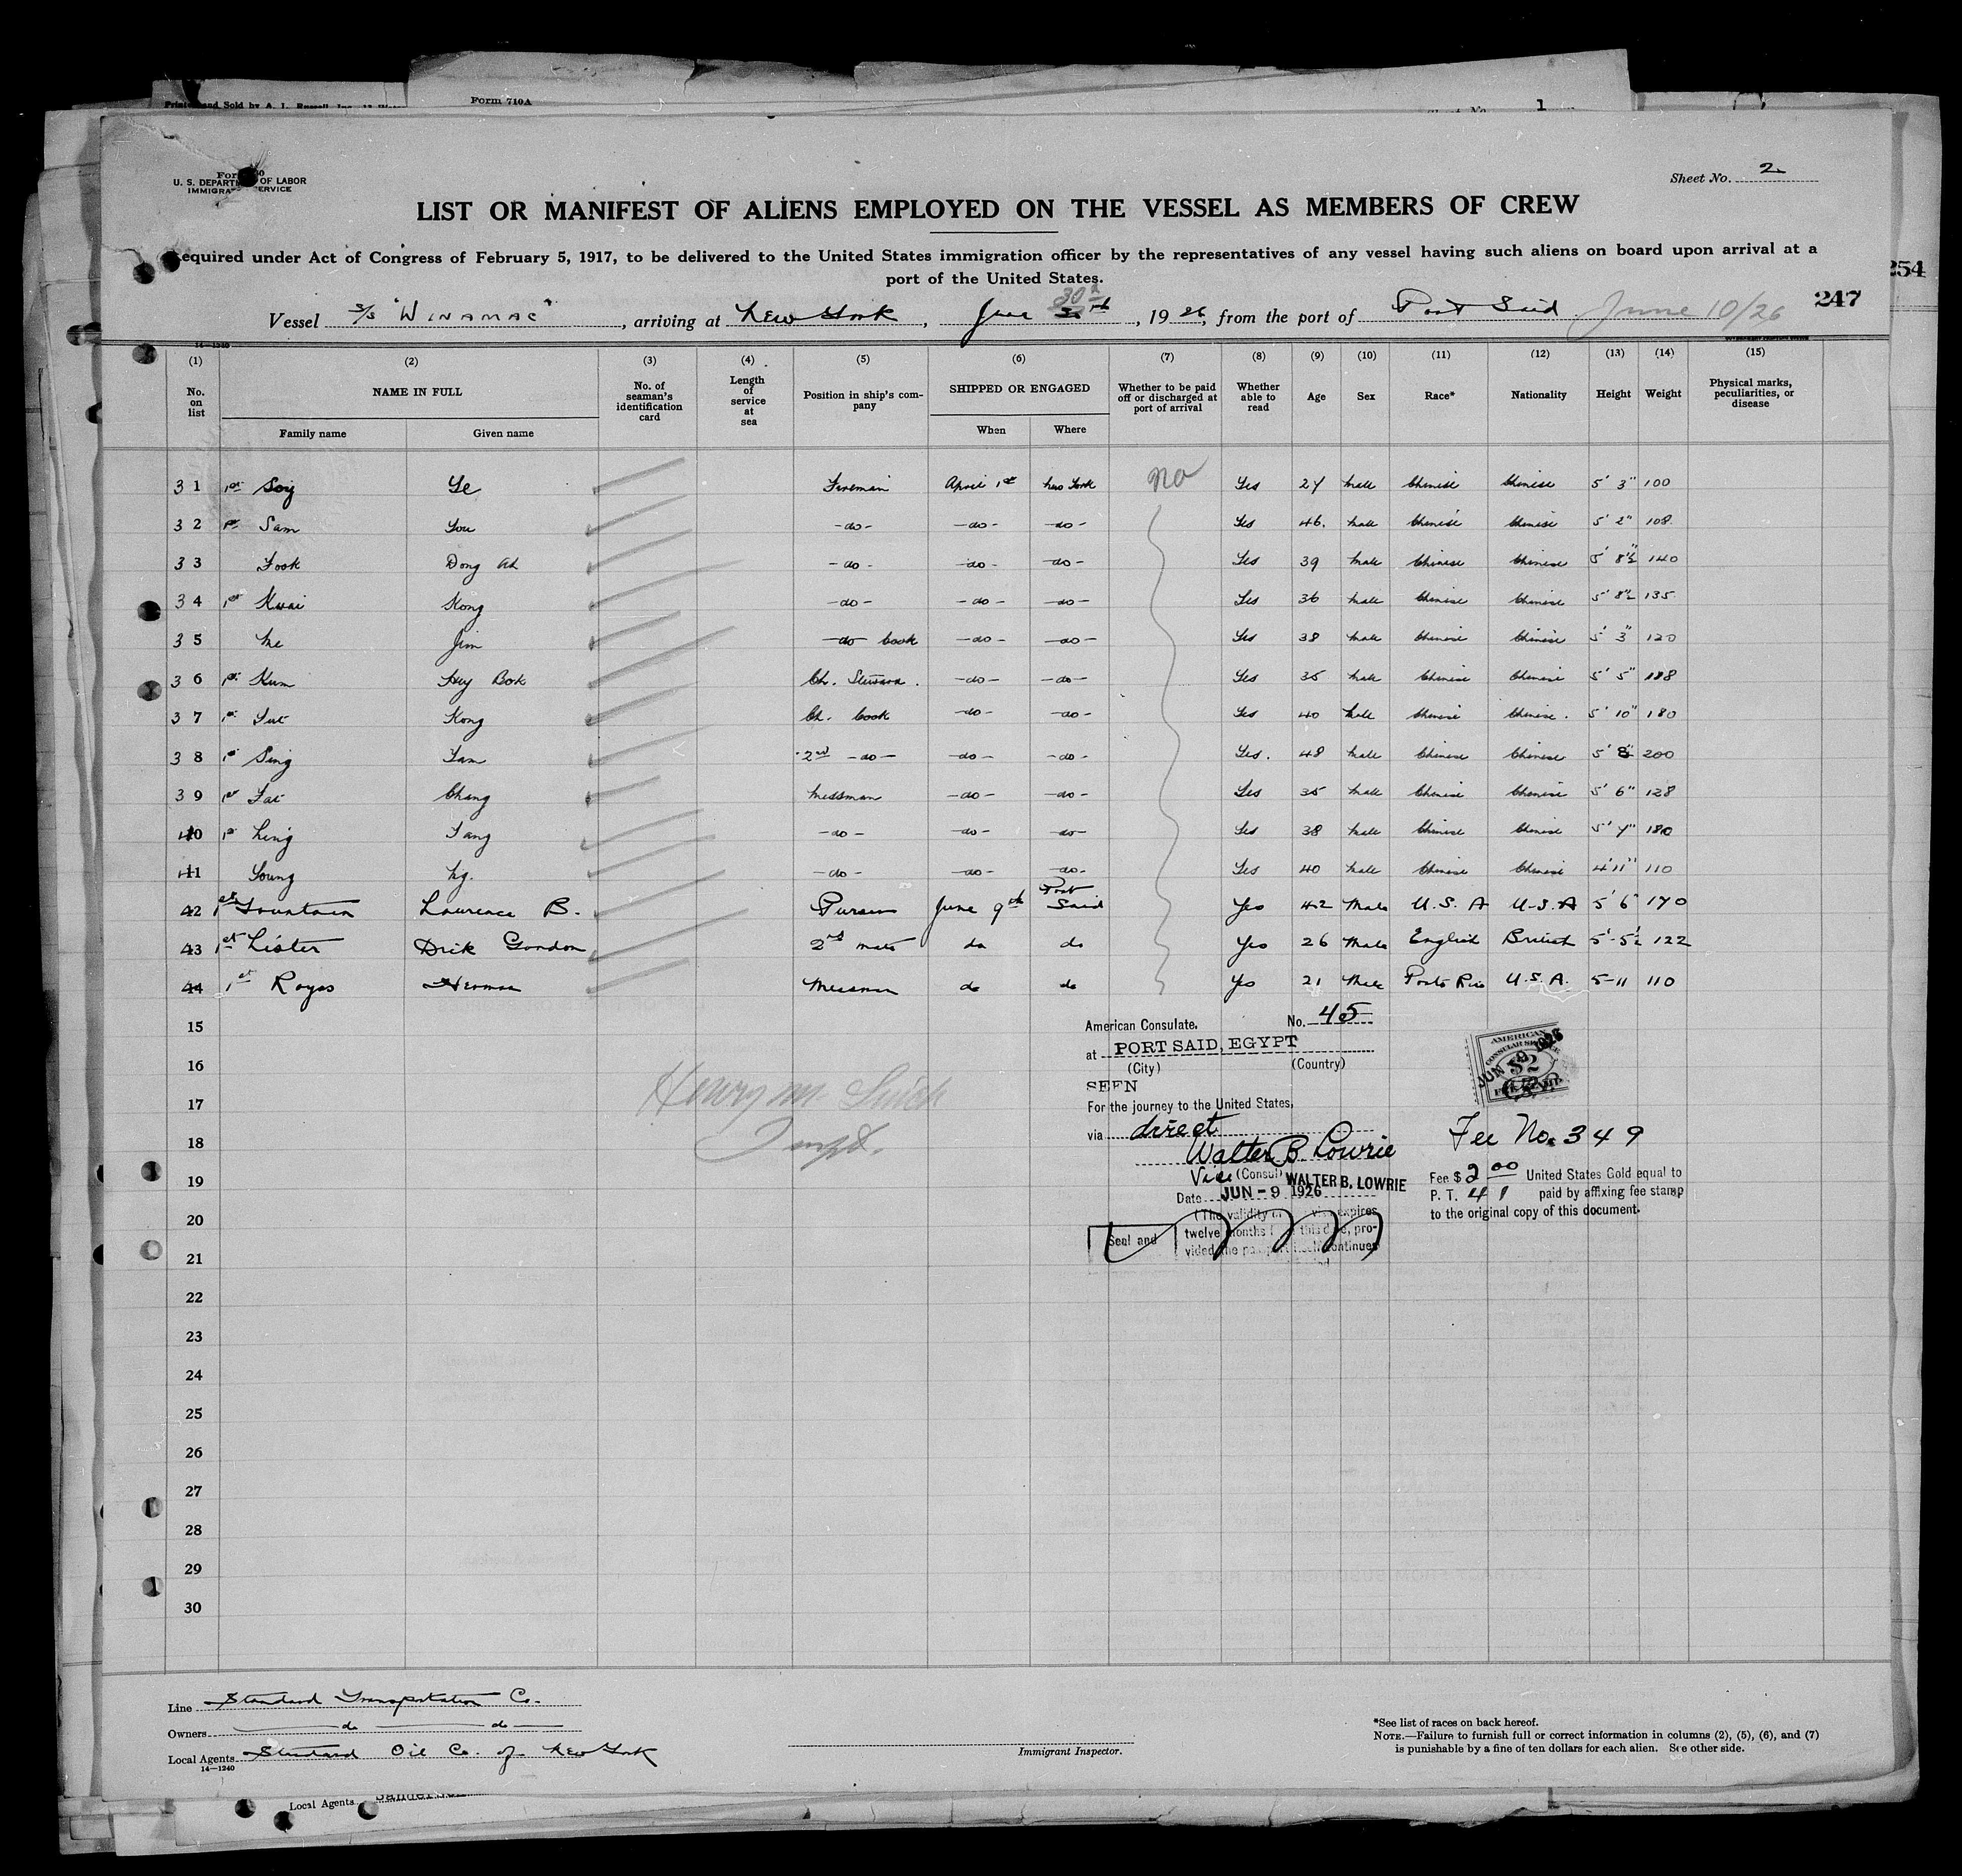 Printed and Sold by A. L. Russell, Inc.
Form 710A
Sheet No. 1
U. S. DEPARTMENT OF LABOR
IMMIGRATION SERVICE
Sheet No. 2
LIST OR MANIFEST OF ALIENS EMPLOYED ON THE VESSEL AS MEMBERS OF CREW
Required under Act of Congress of February 5, 1917, to be delivered to the United States immigration officer by the representatives of any vessel having such aliens on board upon arrival at a
port of the United States.
254
247
Vessel S/S "WINAMAC", arriving at New York, June 30th, 1926, from the port of Port Said June 10/26
14—1240
(1) (2) (3) (4) (5) (6) (7) (8) (9) (10) (11) (12) (13) (14) (15)
No. on list NAME IN FULL No. of seaman's identification card Length of service at sea Position in ship's company SHIPPED OR ENGAGED Whether to be paid off or discharged at port of arrival Whether able to read Age Sex Race* Nationality Height Weight Physical marks, peculiarities, or disease
Family name Given name When Where
31 1st Soy Le Fireman April 1st New York No Yes 27 Male Chinese Chinese 5' 3" 100
32 1st Sam You -do- -do- -do- Yes 46. Male Chinese Chinese 5' 2" 108
33 Fook Dong Ah -do- -do- -do- Yes 39 Male Chinese Chinese 5' 8½" 140
34 1st Kwai Kong -do- -do- -do- Yes 36 Male Chinese Chinese 5' 8½ 135
35 Me Jim -do- Cook -do- -do- Yes 38 Male Chinese Chinese 5' 3" 120
36 1st Kum Huy Bok Ch. Steward. -do- -do- Yes 35 Male Chinese Chinese 5' 5" 188
37 1st Fut Kong Ch. Cook -do- -do- Yes 40 Male Chinese Chinese. 5' 10" 180
38 1st Sing Fam 2nd -do- -do- -do- Yes. 48 Male Chinese Chinese 5' 8" 200
39 1st Fat Chang Messman -do- -do- Yes 35 Male Chinese Chinese 5' 6" 128
40 1st Ling Fang -do- -do- -do- Yes 38 Male Chinese Chinese 5' 7" 180
41 Young Ng. -do- -do- -do- Yes 40 Male Chinese Chinese 4' 11" 110
42 1st Fountain Lawrence B. Purser June 9th Port Said Yes 42 Male U.S.A U.S.A 5' 6" 170
43 1st Lister Dick Gordon 2nd mate do do Yes 26 Male English British 5'-5½ 122
44 1st Reyes Herman Messman do do Yes 21 Male Porto Rico U.S.A. 5-11 110
15
16
17
18
19
20
21
22
23
24
25
26
27
28
29
30
Henry M.
Inspt.
American Consulate. No. 45
at PORT SAID, EGYPT
(City) (Country)
SEEN
For the journey to the United States,
via direct
Walter B. Lowrie
Vice (Consul) WALTER B. LOWRIE
Date JUN - 9 1926
(The validity of visa expires
twelve months this date, pro-
vided the passport itself continues
Seal and
AMERICAN
CONSULAR SERVICE
JUN 9 1926
$2
FEE STAMP
Fee No. 349
Fee $ 2 00 United States Gold equal to
P. T. 41 paid by affixing fee stamp
to the original copy of this document.
Line Standard Transportation Co.
Owners do do
Local Agents Standard Oil Co. of New York
14—1240
Immigrant Inspector.
*See list of races on back hereof.
NOTE.—Failure to furnish full or correct information in columns (2), (5), (6), and (7)
is punishable by a fine of ten dollars for each alien. See other side.
Local Agents